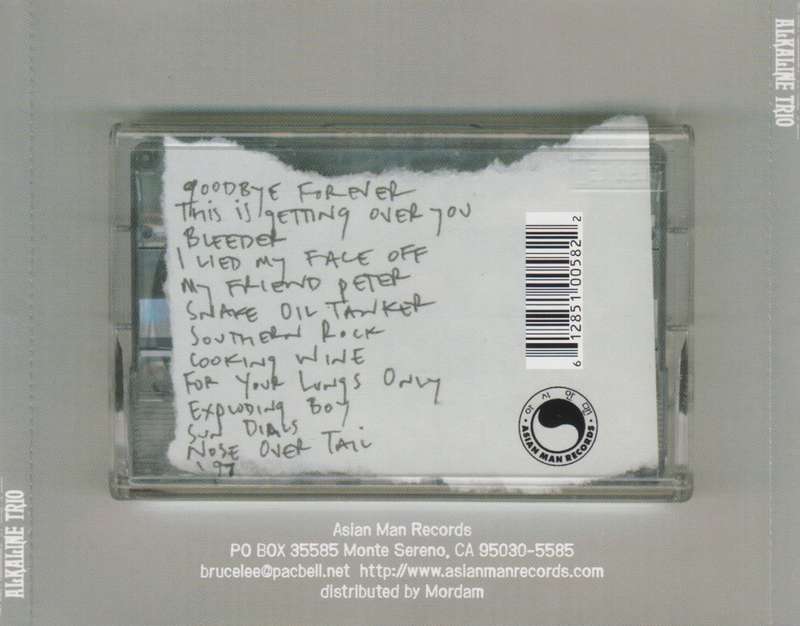 ALKALINE TRIO
GOODBYE FOREVER
THIS IS GETTING OVER YOU
BLEEDER
I LIED MY FACE OFF
MY FRIEND PETER
SNAKE OIL TANKER
SOUTHERN ROCK
COOKING WINE
FOR YOUR LUNGS ONLY
EXPLODING BOY
SUN DIALS
NOSE OVER TAIL
'97
6 12851 00582 2
ASIAN MAN RECORDS
Asian Man Records
PO BOX 35585 Monte Sereno, CA 95030-5585
brucelee@pacbell.net http://www.asianmanrecords.com
distributed by Mordam
ALKALINE TRIO